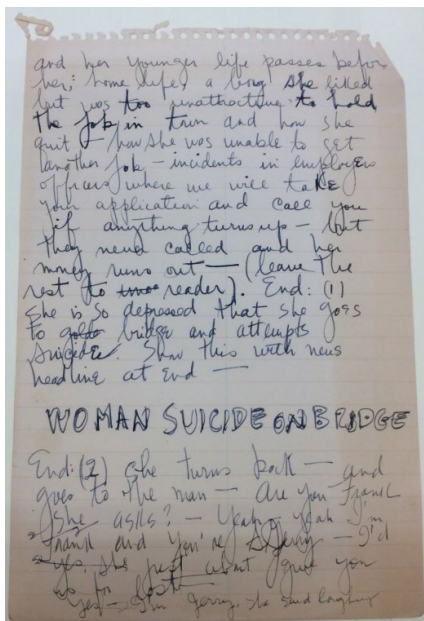 and her younger life passes before
her; home life, a boy she liked
but was too unattractive to hold
the job in town and how she
quit – how she was unable to get
another job – incidents in employers
offices where we will take
your application and call you
if anything turns up – but
they never called and her
money runs out – (leave the
rest to reader). End: (1)
she is so depressed that she goes
to bridge and attempts
suicide. Show this with news
headline at end –
WOMAN SUICIDE ON BRIDGE
End: (2) She turns back – and
goes to the man – Are you Frank
she asks? – Yeah, yeah I'm
Frank and you're – I'd
just about give you
up for lost
Yes – I'm Jerry, she said